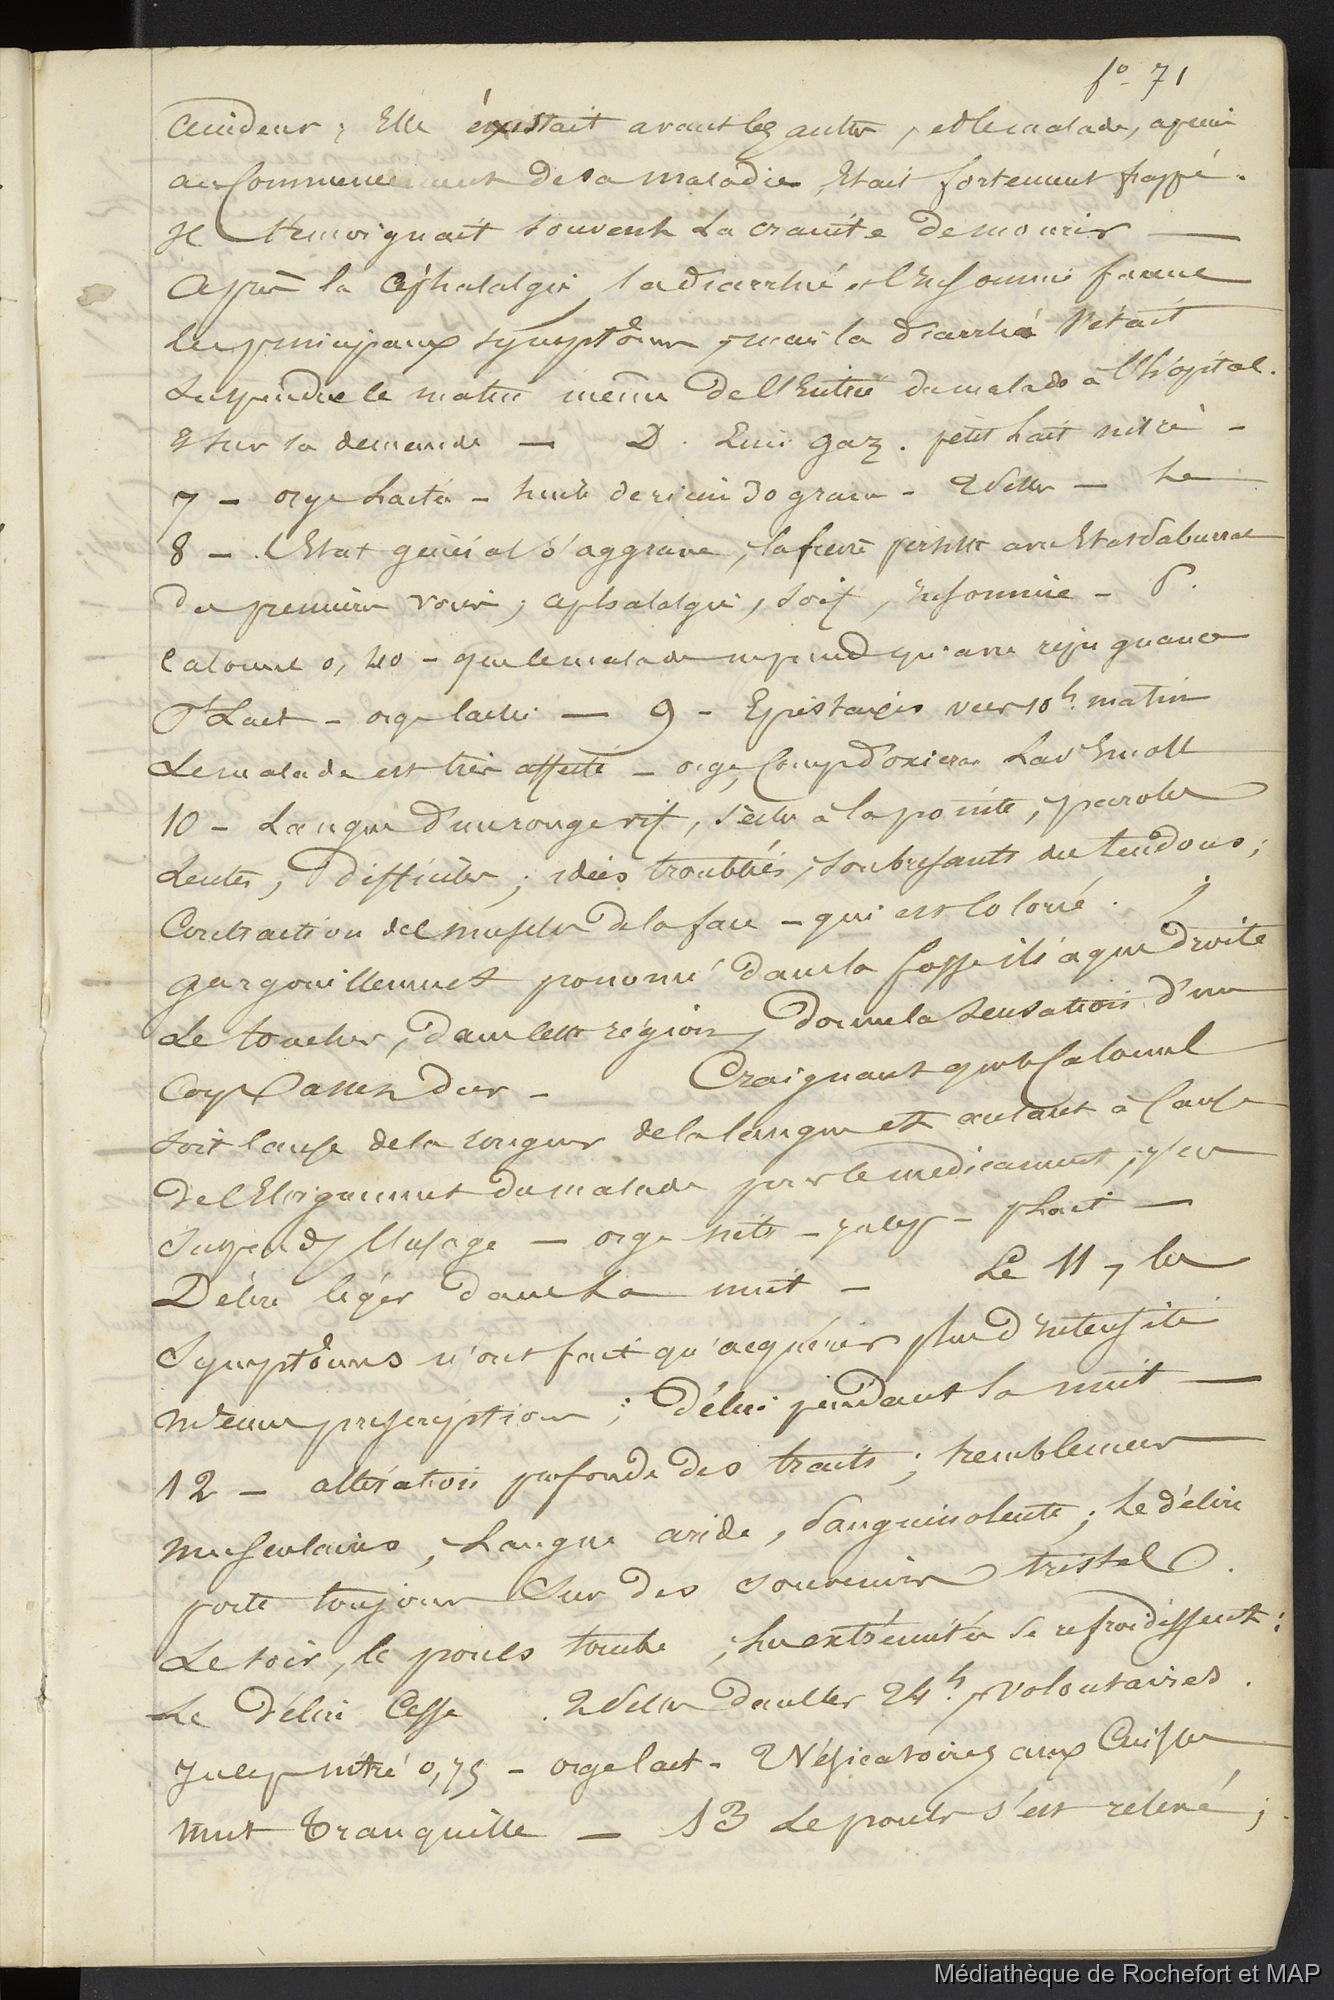 fo. 71
; Elle éxistait avant les autres, et le malade, à peine
au Commencement de sa maladie Etait fortement frappé.
Il temoignait souvent la crainte de mourir —
Après la Céphalalgie, la diarrhée et l'insomnie furent
les principaux symptômes, mais la diarrhée s'était
suspendue le matin même de l'Entrée du malade à l'hôpital.
Et sur sa demande — D. Lim gaz. petit lait nitré —
7 — orge lactée — huile de ricin 30 gram — 2 selles — Le
8 — L'Etat général s'aggrave, la fievre persiste avec Etat Saburral
des premieres voies; cephalalgie, soif, insomnie — P.
Calomel 0,40 — que le malade ne prend qu'avec repugnance
Pt Lait — orge lactée — 9 — Epistaxis vers 10h. matin
Le malade est très affecté — orge, Comp d'oxicrat Lavt Emoll
10 — Langue d'un rouge vif, sèche à la pointe, paroles
Lentes, difficiles; idées troublées, soubresauts des tendons;
Contraction des muscles de la face — qui est colorée. ;
gargouillement prononcé dans la fosse iliaque droite
Le toucher, dans cette région, donne la sensation d'un
Corps assez dur — Craignant que le Calomel
soit cause de la rougeur de la langue et autant à cause
de l'Eloignement du malade pour le medicament, j'en
suspends l'usage — orge nitr — julep — pt lait —
Délire léger dans la nuit — Le 11, les
Symptômes n'ont fait qu'acquérir plus d'intensité
même prescription; Délire pendant la nuit —
12 — altération profonde des traits; tremblements
musculaires, Langue aride, sanguinolente; Le délire
porte toujours sur des souvenirs tristes.
Le soir, le pouls tombe, les extrémités se refroidissent;
Le délire Cesse. 2 selles dans les 24h. volontaires.
Julep nitré 0,75 — orge lact — 2 Vésicatoires aux Cuisses
nuit tranquille — 13 Le pouls s'est relevé;
Médiathèque de Rochefort et MAP